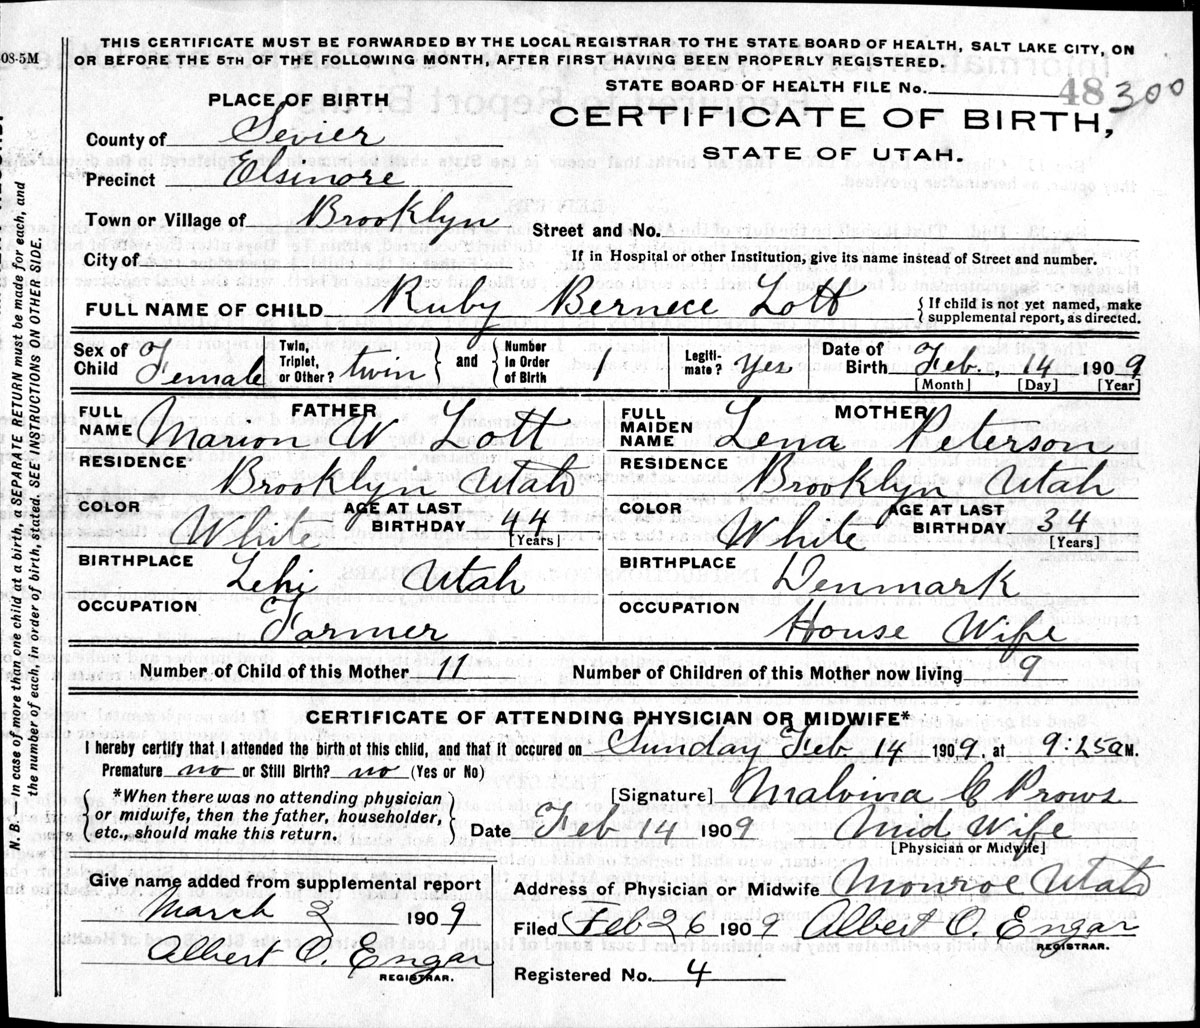 THIS CERTIFICATE MUST BE FORWARDED BY THE LOCAL REGISTRAR TO THE STATE BOARD OF HEALTH, SALT LAKE CITY, ON
OR BEFORE THE 5TH OF THE FOLLOWING MONTH, AFTER FIRST HAVING BEEN PROPERLY REGISTERED.
08-5M
STATE BOARD OF HEALTH FILE No. 48300
PLACE OF BIRTH
CERTIFICATE OF BIRTH,
STATE OF UTAH.
County of Sevier
Precinct Elsinore
Town or Village of Brooklyn
Street and No.
City of
If in Hospital or other Institution, give its name instead of Street and number.
FULL NAME OF CHILD Ruby Bernece Lott { If child is not yet named, make supplemental report, as directed.
Sex of Child Female Twin, Triplet, or Other? twin } and { Number in Order of Birth 1 Legitimate? Yes Date of Birth Feb., 14 1909
[Month] [Day] [Year]
FATHER
FULL NAME Marion W Lott
RESIDENCE Brooklyn Utah
COLOR White AGE AT LAST BIRTHDAY 44 [Years]
BIRTHPLACE Lehi Utah
OCCUPATION Farmer
MOTHER
FULL MAIDEN NAME Lena Peterson
RESIDENCE Brooklyn Utah
COLOR White AGE AT LAST BIRTHDAY 34 [Years]
BIRTHPLACE Denmark
OCCUPATION House Wife
Number of Child of this Mother 11 Number of Children of this Mother now living 9
CERTIFICATE OF ATTENDING PHYSICIAN OR MIDWIFE*
I hereby certify that I attended the birth of this child, and that it occured on Sunday Feb 14 1909, at 9:25 a M.
Premature no or Still Birth? no (Yes or No)
[Signature] Malvina C Prows
{ *When there was no attending physician
or midwife, then the father, householder,
etc., should make this return. }
Date Feb 14 1909 Mid Wife
[Physician or Midwife]
Give name added from supplemental report
March 2 1909
Albert O. Engar
REGISTRAR.
Address of Physician or Midwife Monroe Utah
Filed Feb 26 1909 Albert O. Engar
REGISTRAR.
Registered No. 4
N. B.— In case of more than one child at a birth, a SEPARATE RETURN must be made for each, and
the number of each, in order of birth, stated. SEE INSTRUCTIONS ON OTHER SIDE.